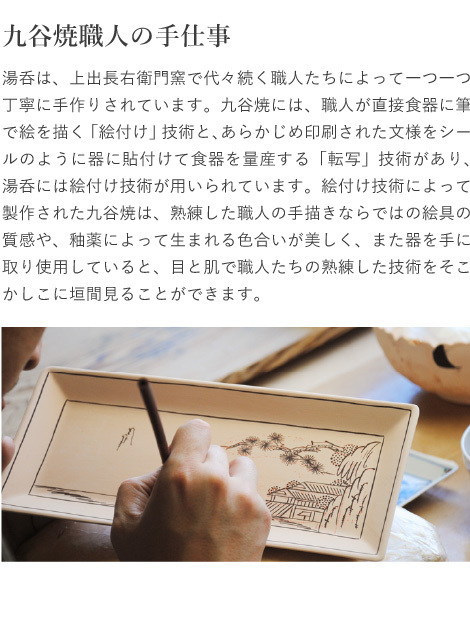 九谷焼職人の手仕事
湯呑は、上出長右衛門窯で代々続く職人たちによって一つ一つ
丁寧に手作りされています。九谷焼には、職人が直接食器に筆
で絵を描く「絵付け」技術と、あらかじめ印刷された文様をシー
ルのように器に貼付けて食器を量産する「転写」技術があり、
湯呑には絵付け技術が用いられています。絵付け技術によって
製作された九谷焼は、熟練した職人の手描きならではの絵具の
質感や、釉薬によって生まれる色合いが美しく、また器を手に
取り使用していると、目と肌で職人たちの熟練した技術をそこ
かしこに垣間見ることができます。